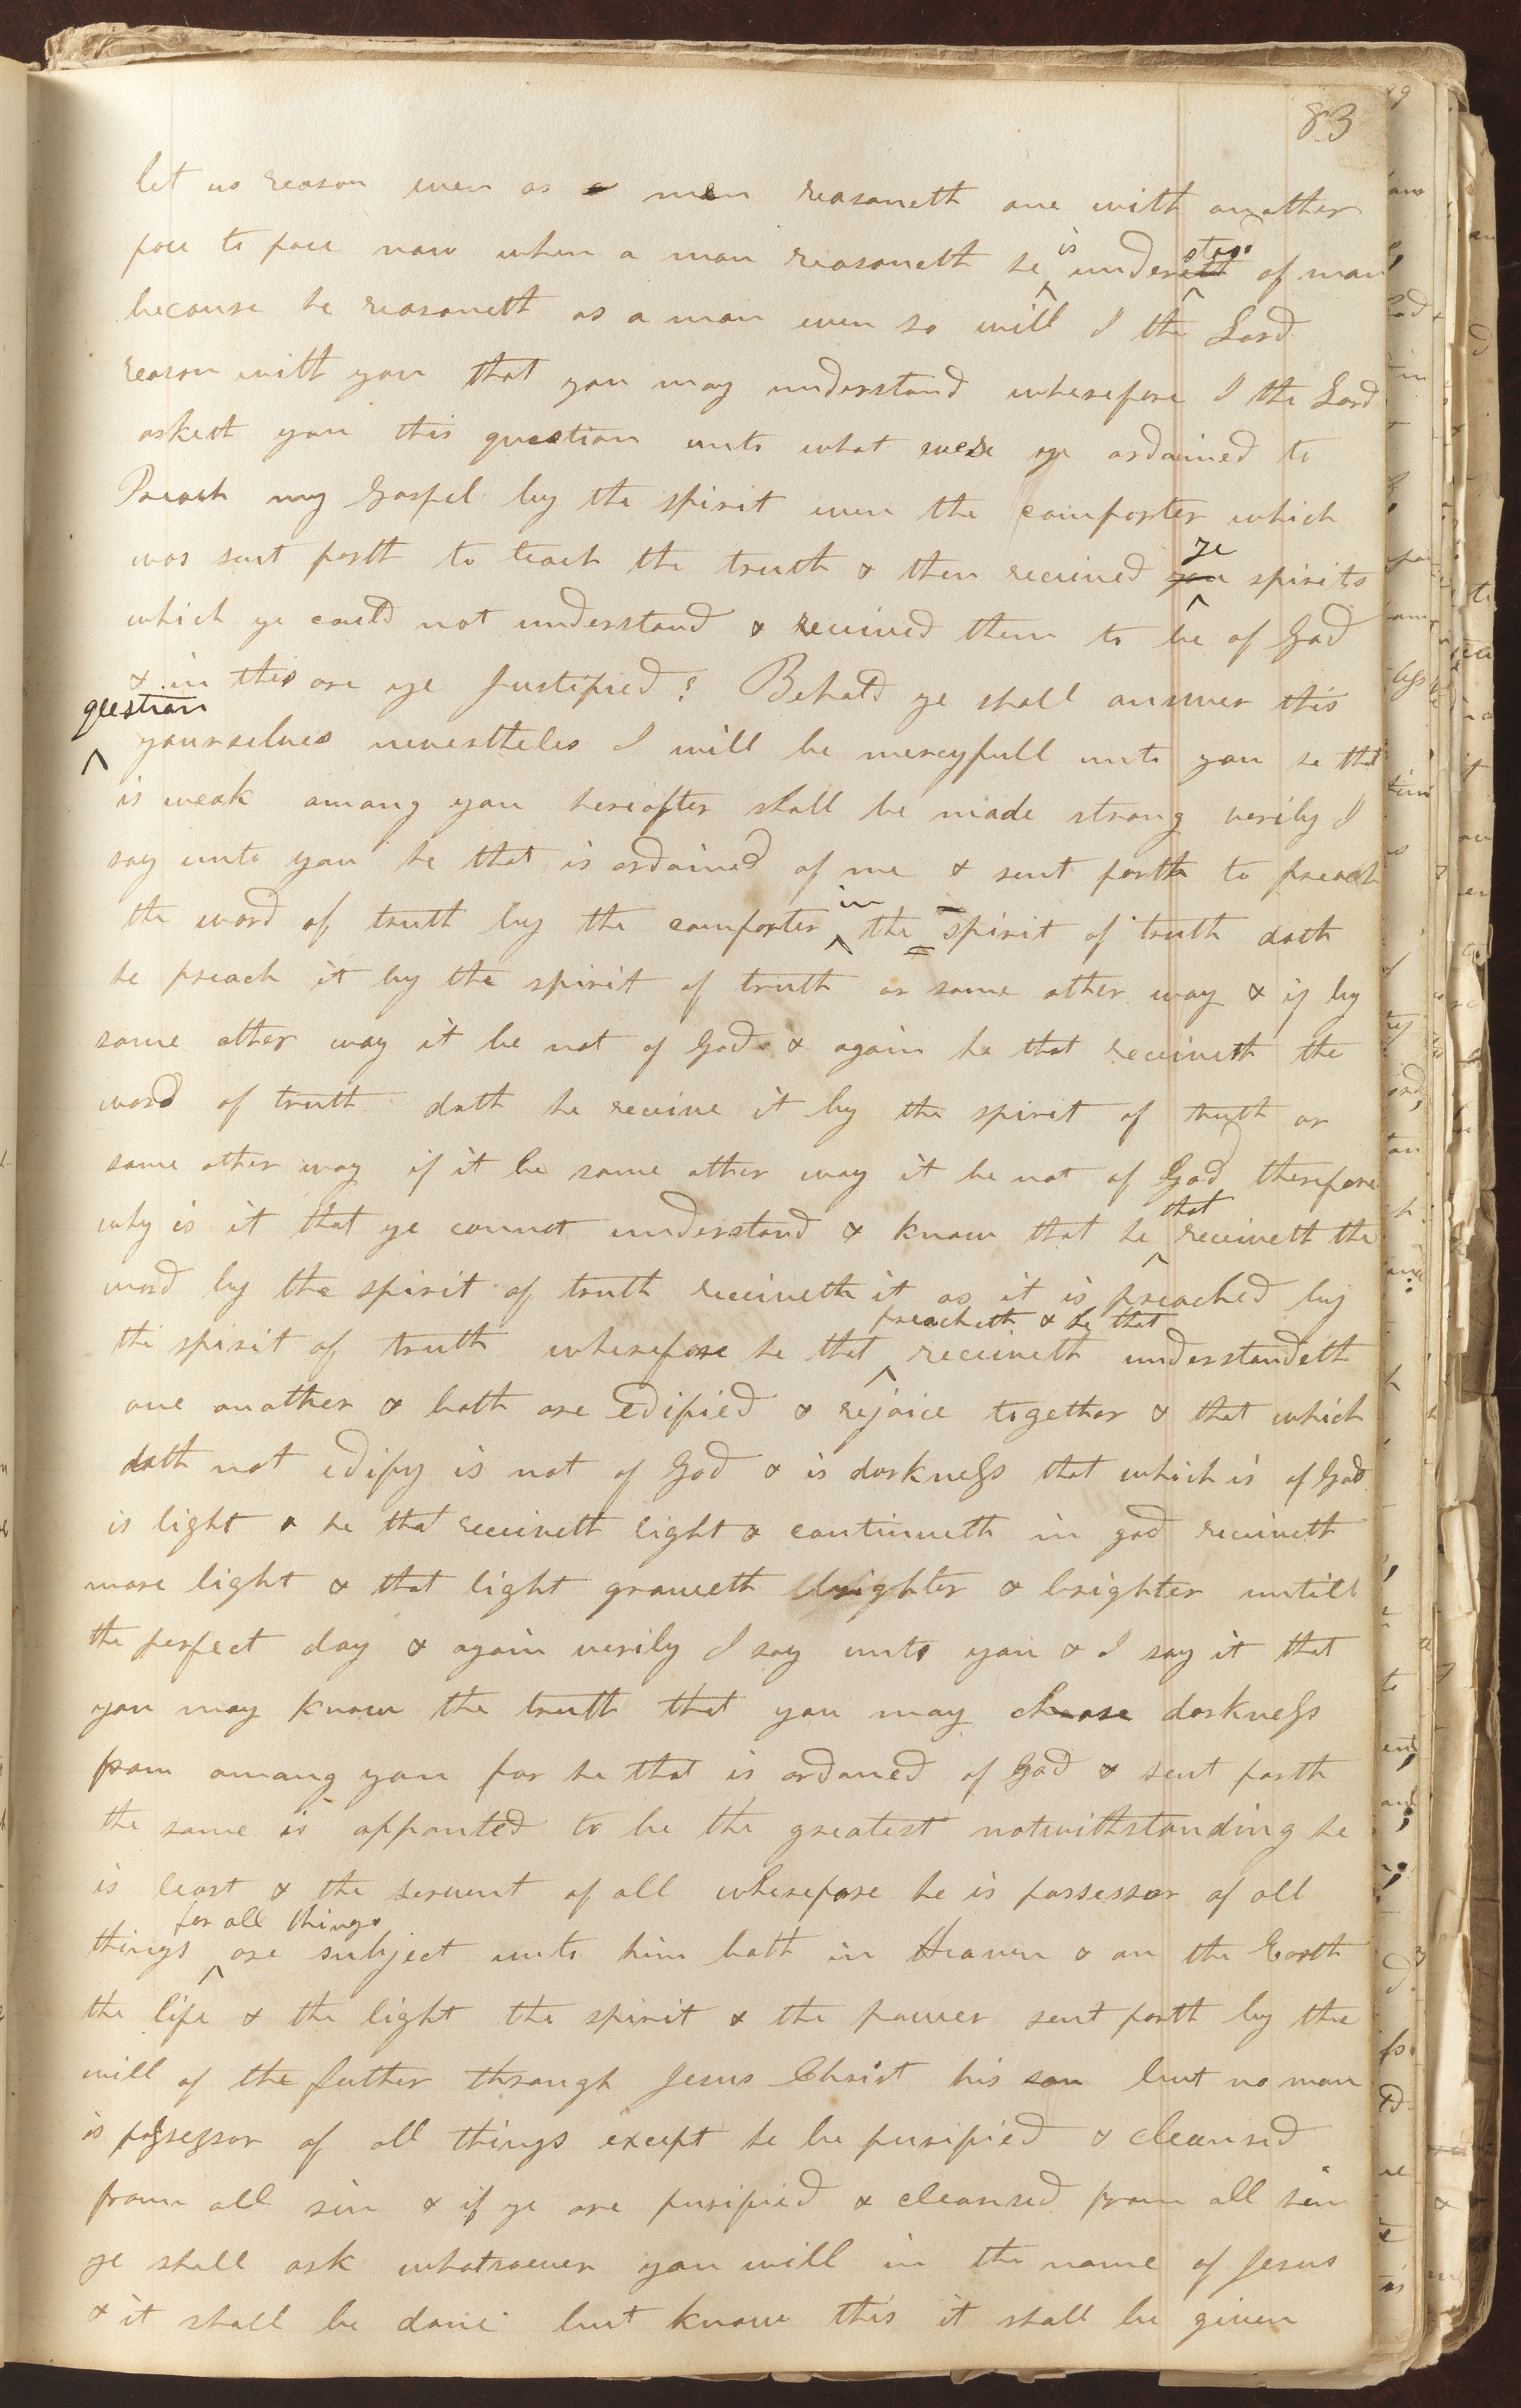 83
let us reason even as a men reasoneth one with another
face to face now when a man reasoneth he is understood of man
because he reasoneth as a man even so will I the Lord
reason with you that you may understand wherefore I the Lord
asketh you this question unto what were ye ordained to
Preach my Gospel by the spirit even the comforter which
was sent forth to teach the truth & then received you ye spirits
which ye could not understand & received them to be of God
& in this are ye Justified? Behold ye shall answer this
question
yourselves nevertheles I will be mercyfull unto you he that
is weak among you hereafter shall be made strong verily I
say unto you he that is ordained of me & sent forth to preach
the word of truth by the comforter in the spirit of truth doth
he preach it by the spirit of truth or some other way & if by
some other way it be not of God & again he that receiveth the
word of truth doth he receive it by the spirit of truth or
some other way if it be some other way it be not of God therefore
why is it that ye cannot understand & know that he that receiveth the
word by the spirit of truth receiveth it as it is preached by
the spirit of truth wherefore he that preacheth & he that receiveth understandeth
one another & both are edified & rejoice together & that which
doth not edify is not of God & is darkness that which is of God
is light & he that receiveth light & continueth in god receiveth
more light & that light groweth brighter & brighter untill
the perfect day & again verily I say unto you & I say it that
you may know the truth that you may chase darkness
from among you for he that is ordaned of God & sent forth
the same is appointed to be the greatest notwithstanding he
is least & the servent of all wherefore he is possessor of all
things for all things are subject unto him both in Heaven & on the Earth
the life & the light the spirit & the power sent forth by the
will of the father through Jesus Christ his son but no man
is possessor of all things except he be purified & cleansed
from all sin & if ye are purified & cleansed from all sin
ye shall ask whatsoever you will in the name of Jesus
& it shall be done but know this it shall be given